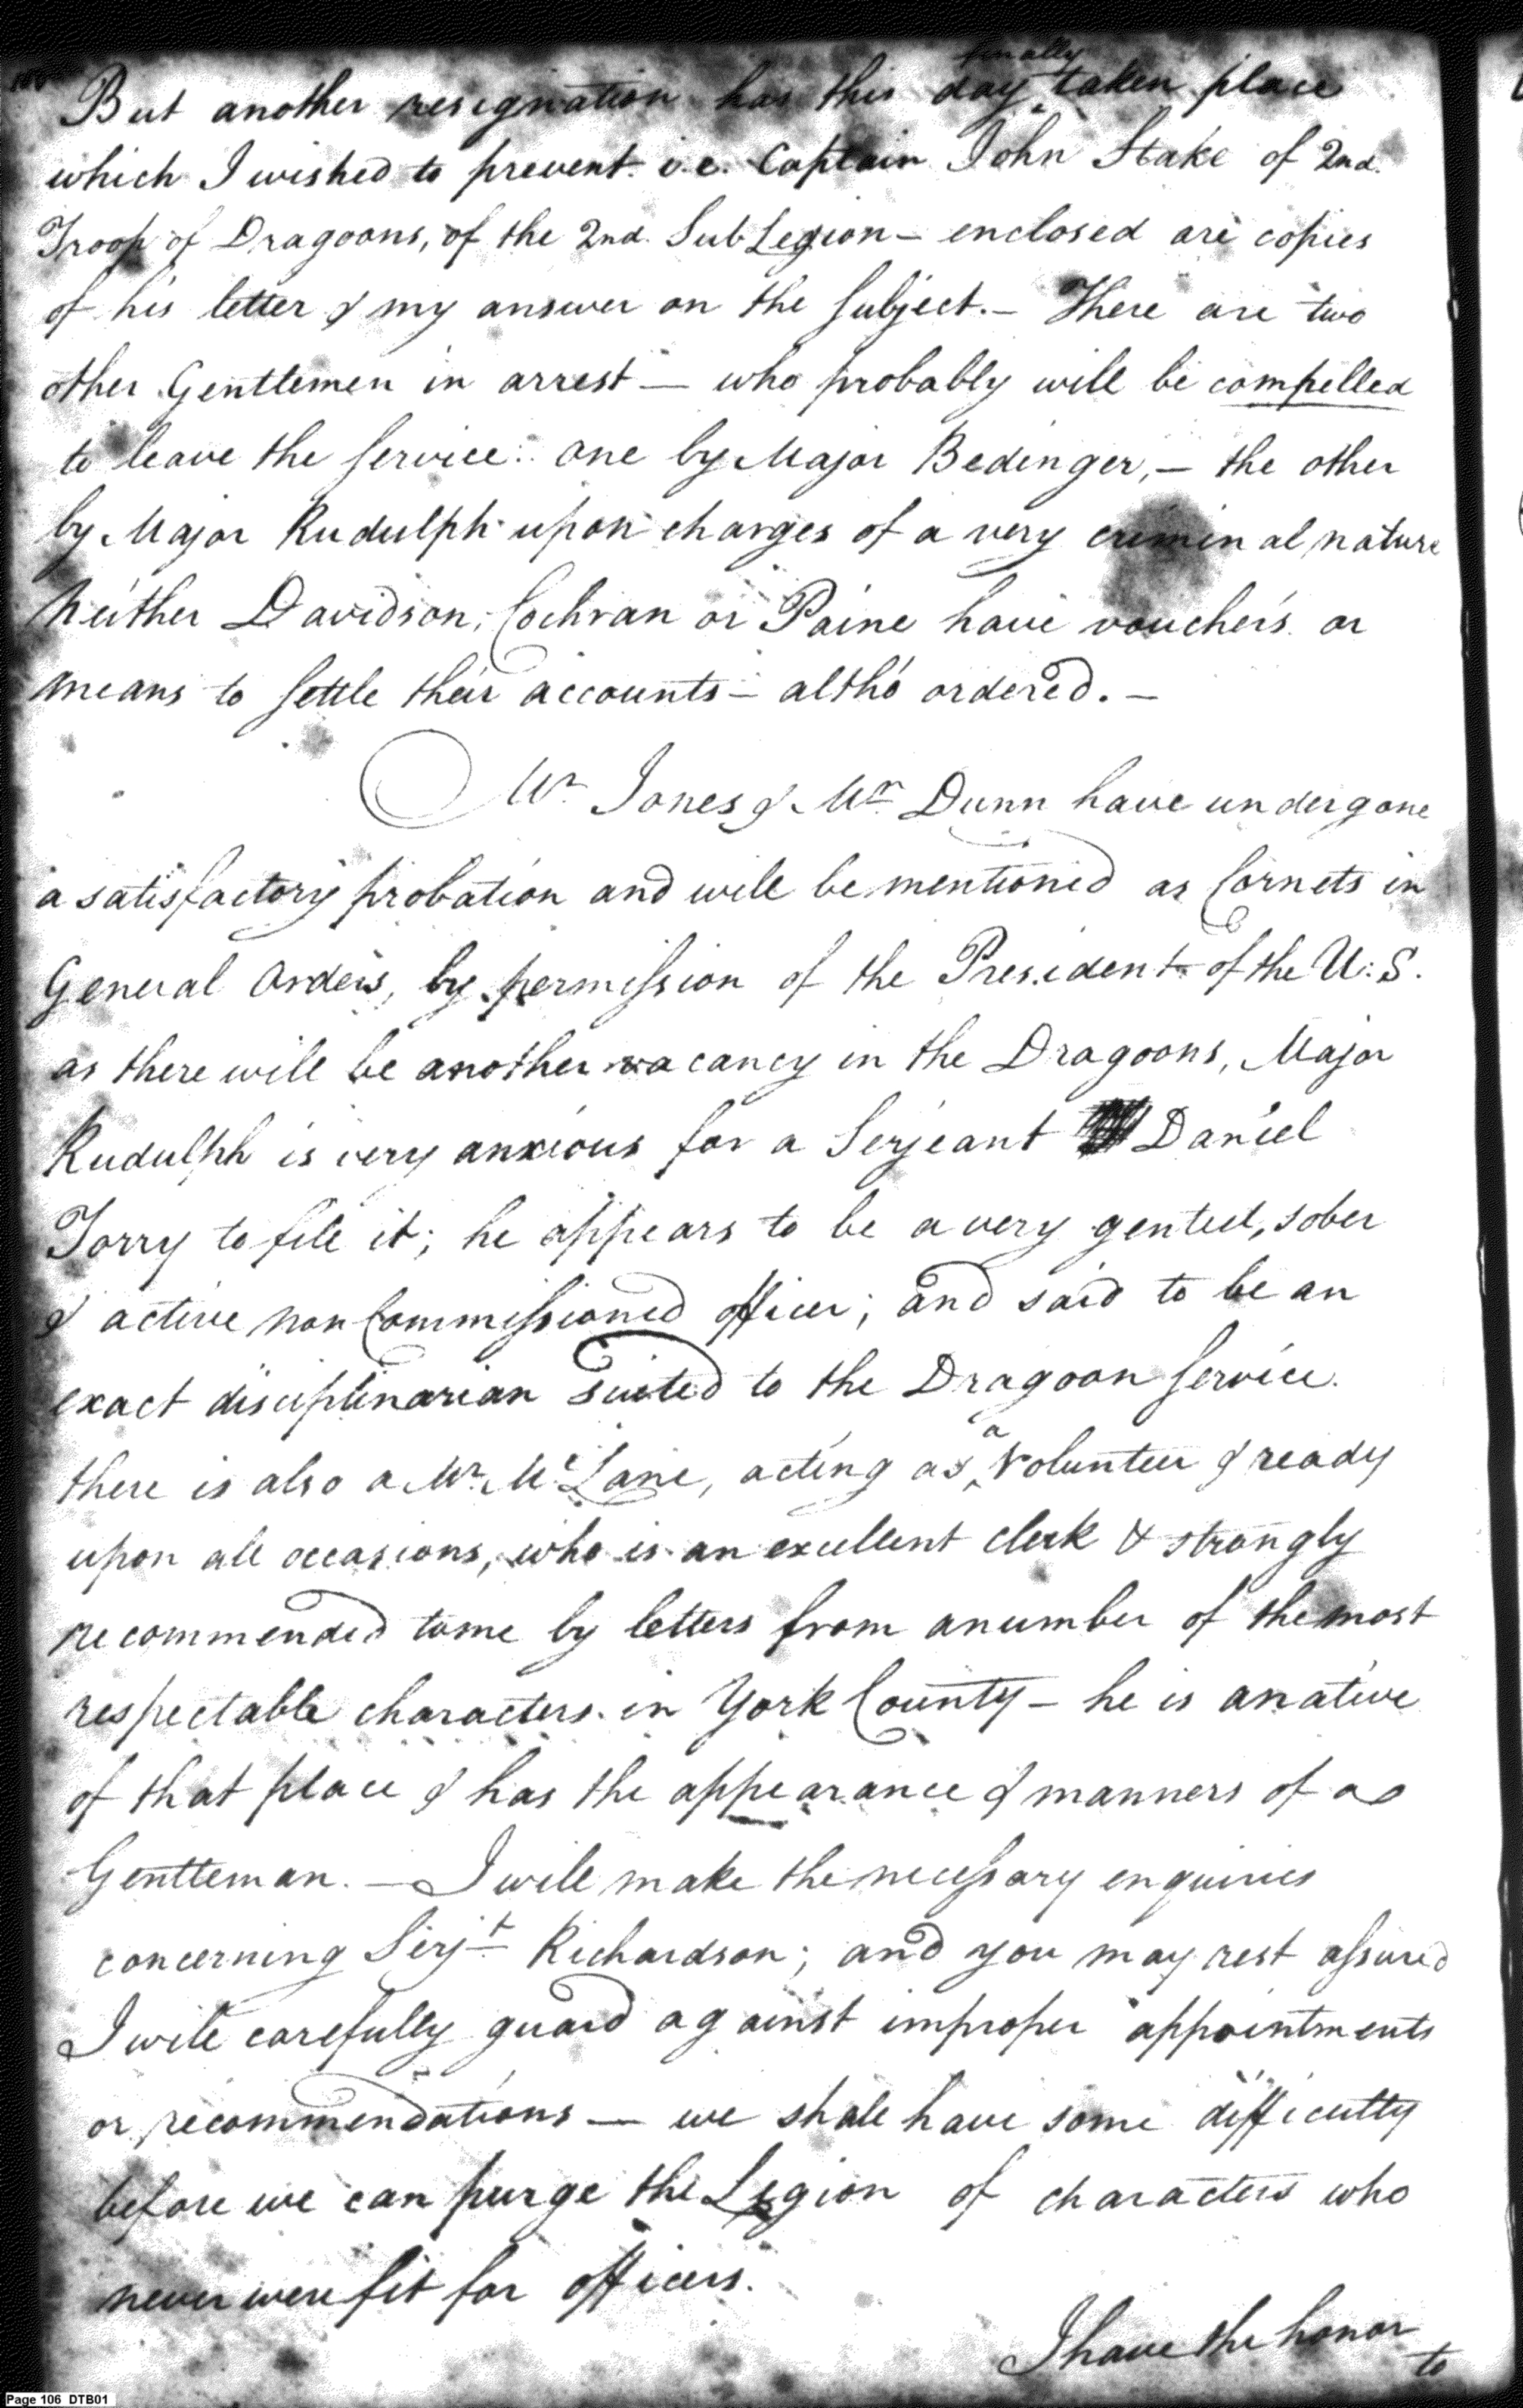 106
finally
But another resignation has this day ^ taken place
which I wished to prevent. i.e. Captain John Stake of 2nd.
Troop of Dragoons, of the 2nd. Sub Legion – enclosed are copies
of his letter & my answer on the subject. – There are two
other Gentlemen in arrest — who probably will be compelled
to leave the service: one by Major Bedinger, – the other
by Major Rudulph upon charges of a very criminal nature
Neither Davidson, Cochran or Paine have vouchers or
means to settle their accounts – altho' ordered. –
Mr. Jones & Mr. Dunn have undergone
a satisfactory probation and will be mentioned as Cornets in
General Orders, by permission of the President of the U: S.
as there will be another vacancy in the Dragoons, Major
Rudulph is very anxious for a Serjeant Daniel
Torry to fill it; he appears to be a very genteel, sober
& active non Commissioned officer; and said to be an
exact disciplinarian suited to the Dragoon service.
there is also a Mr. McLane, acting as ^a Volunteer & ready
upon all occasions, who is an excellent clerk & strongly
recommended to me by letters from a number of the most
respectable characters in York County – he is a native
of that place & has the appearance & manners of a
Gentleman. — I will make the necessary enquiries
concerning Serjt. Richardson; and you may rest assured
I will carefully guard against improper appointments
or recommendations — we shall have some difficulty
before we can purge the Legion of characters who
never were fit for officers.
I have the honor
to
Page 106 DTB01